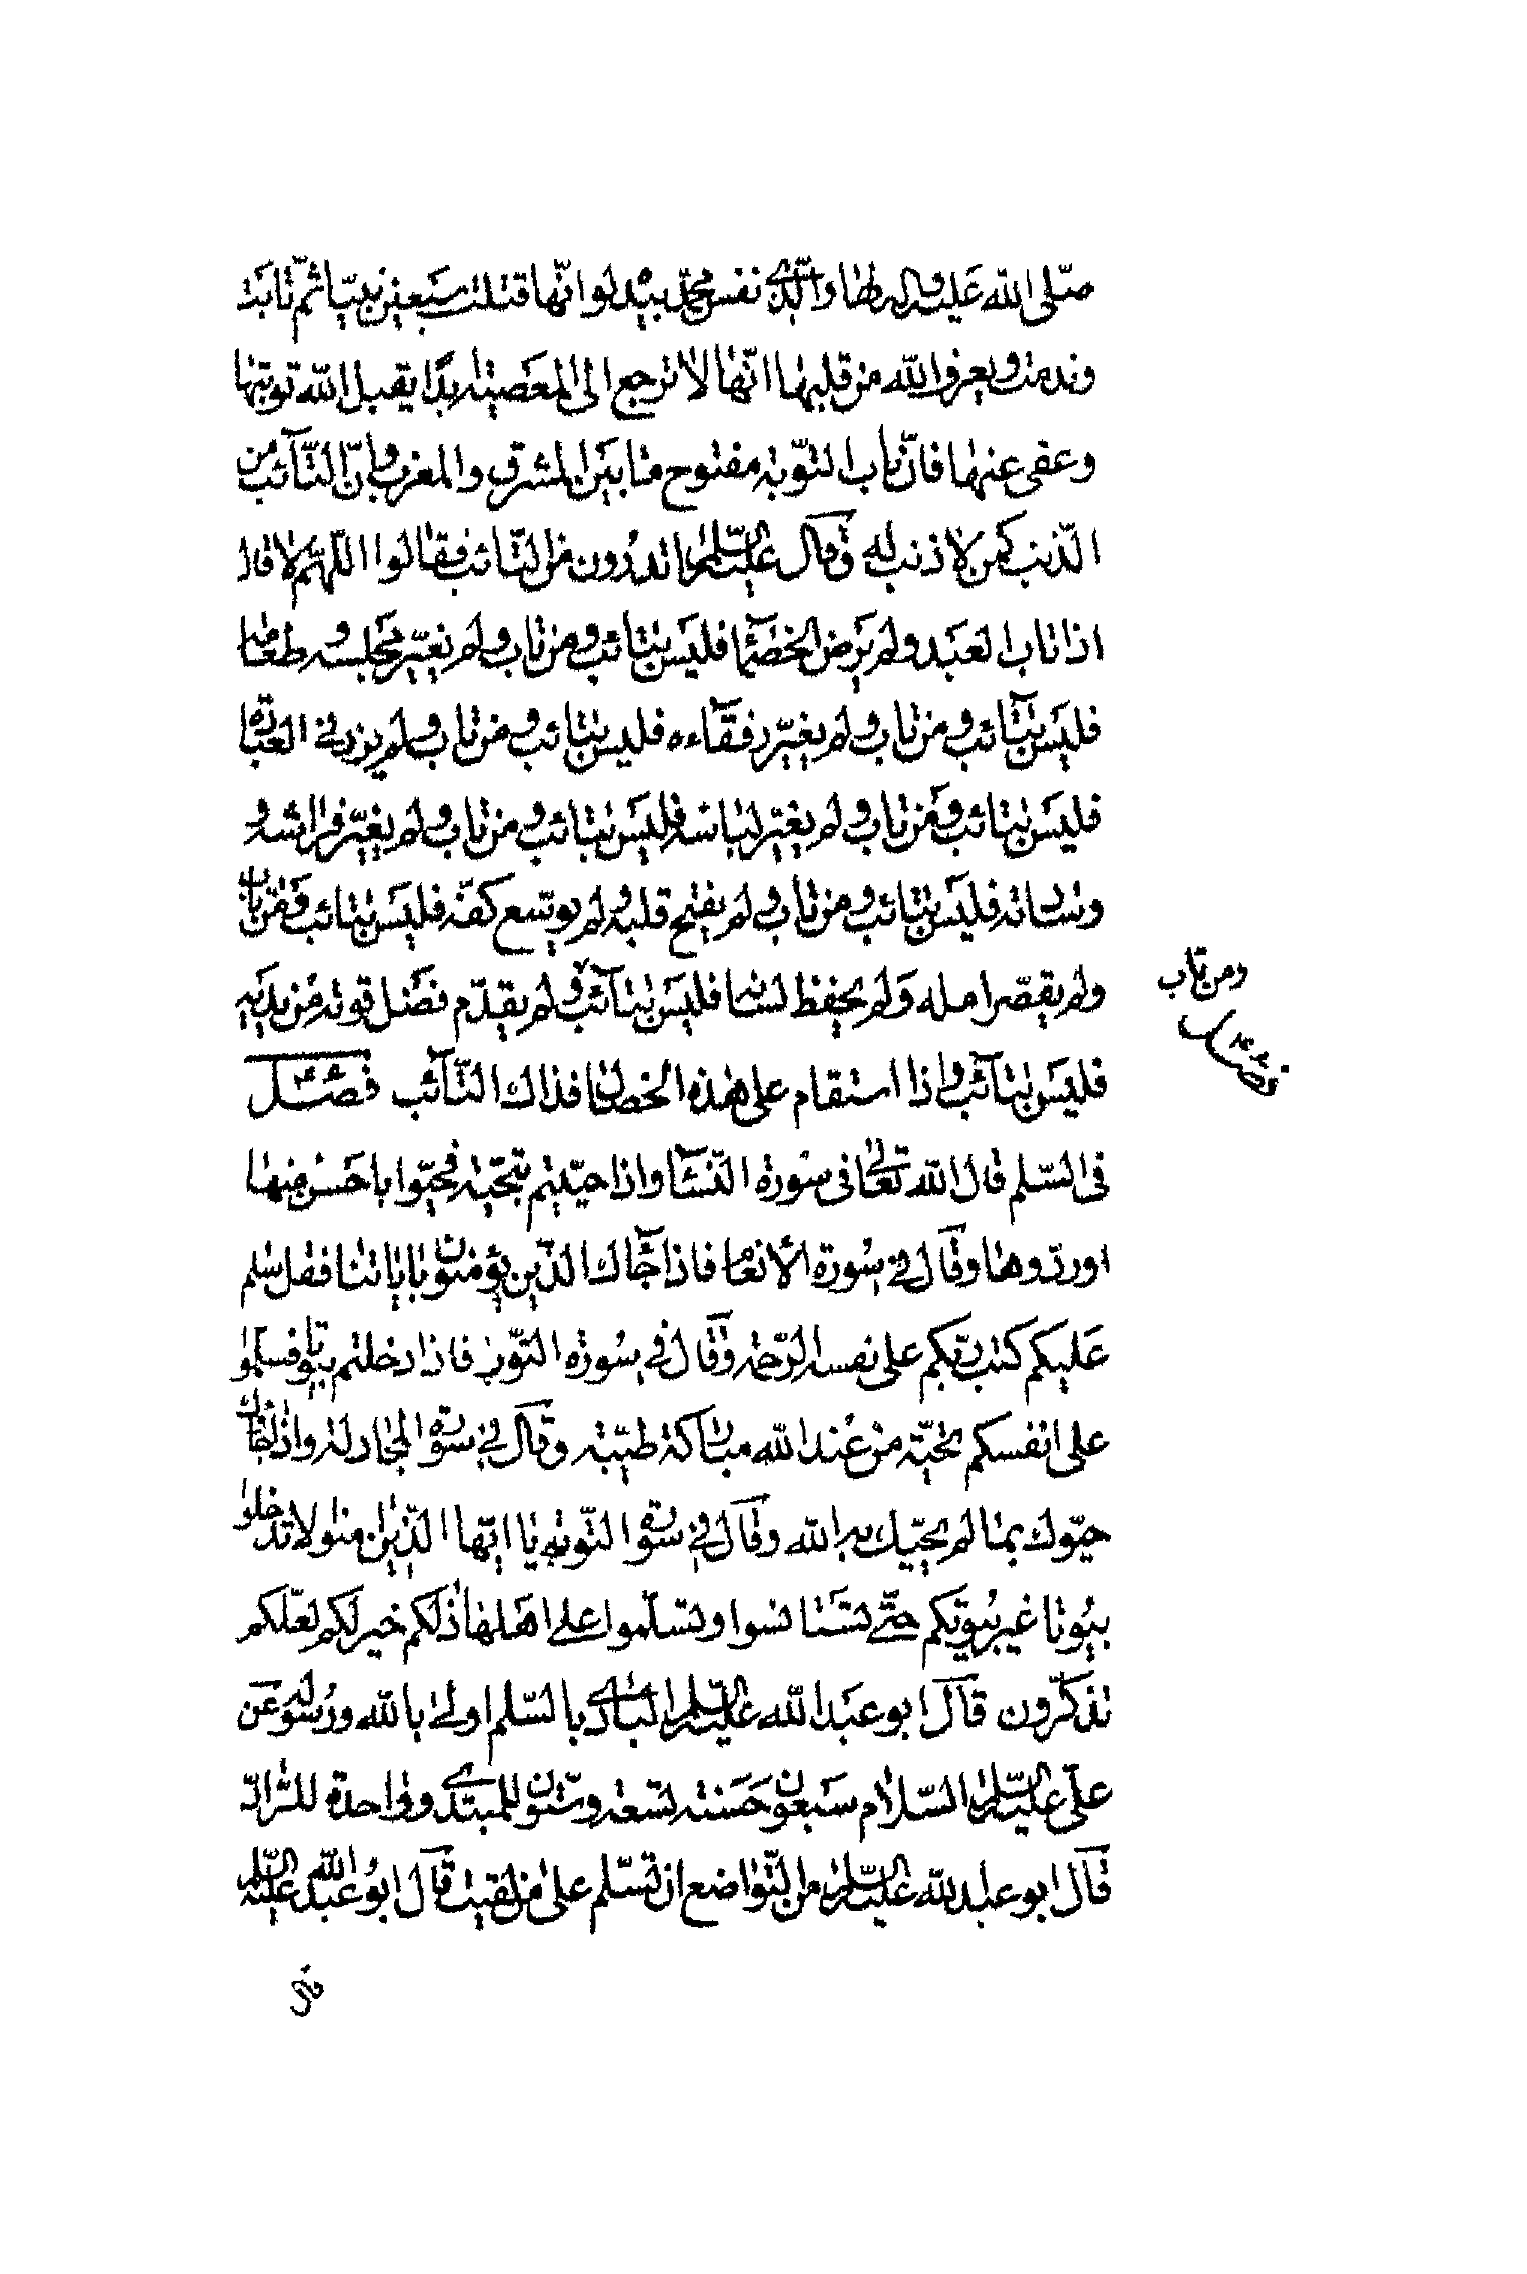 صلّى الله عليه وآله لها والّذى نفس محمّد بيده لو انّها قتلت سبعين نبيّا ثمّ تابت
وندمت ويعرف الله من قلبها انّها لا ترجع الى المعصية ابدًا يقبل الله توبتها
وعفى عنها فانّ باب التّوبة مفتوح ما بين المشرق والمغرب وانّ التّآئب من
الذّنب كمن لا ذنب له وقال عليه السّلم اتدرون من التّائب فقالوا اللّهمّ لا قال
اذا تاب العبد ولم يرض الخصمآء فليس بتائب ومن تاب ولم يغيّر مجلسه وطعامه
فليس بتآئب ومن تاب ولم يغيّر رفقآءه فليس بتائب ومن تاب ولم يزد فى العبادة
فليس بتائب ومن تاب ولم يغيّر لباسه فليس بتائب ومن تاب ولم يغيّر فراشه و
وسادته فليس بتائب ومن تاب ولم يفتح قلبه ولم يوسّع كفّه فليس بتائب ومن تاب
ولم يقصّر امله ولم يحفظ لسانه فليس بتآئب ولم يقدّم فضل قوته من يديه
ومن تاب
فليس بتآئب واذا استقام على هذه الخصال فذاك التّآئب فصل
فى السّلم قال الله تعالى فى سورة النّسآء واذا حيّيتم بتحيّة فحيّوا باحسن منها
او ردّوها وقال فى سورة الأنعام فاذا جآك الذّين يؤمنون باياتنا فقل سلم
عليكم كتب ربّكم على نفسه الرّحمة وقال فى سورة النّور فاذا دخلتم بيوتا فسلّموا
على انفسكم تحيّة من عند الله مباركة طيّبة وقال فى سورة المجادلة واذا جآؤك
حيّوك بما لم يحيّك به الله وقال فى سورة التّوبة يا ايّها الّذين امنوا لا تدخلوا
بيُوتا غير بُيوتكم حتّى تستانسوا وتسلّموا على اهلها ذلكم خير لكم لعلّكم
تذكّرون قال ابو عبد الله عليه السّلم البادى بالسّلم اولى بالله ورسوله وعن
علىّ عليه السّلم السّلام سبعون حسنة تسعة وستّون للمبتدى وواحدة للرّادّ
قال ابو عبد الله عليه السّلم من التّواضع ان تسلّم على من لقيت قال ابو عبد الله عليه السّلم
قال